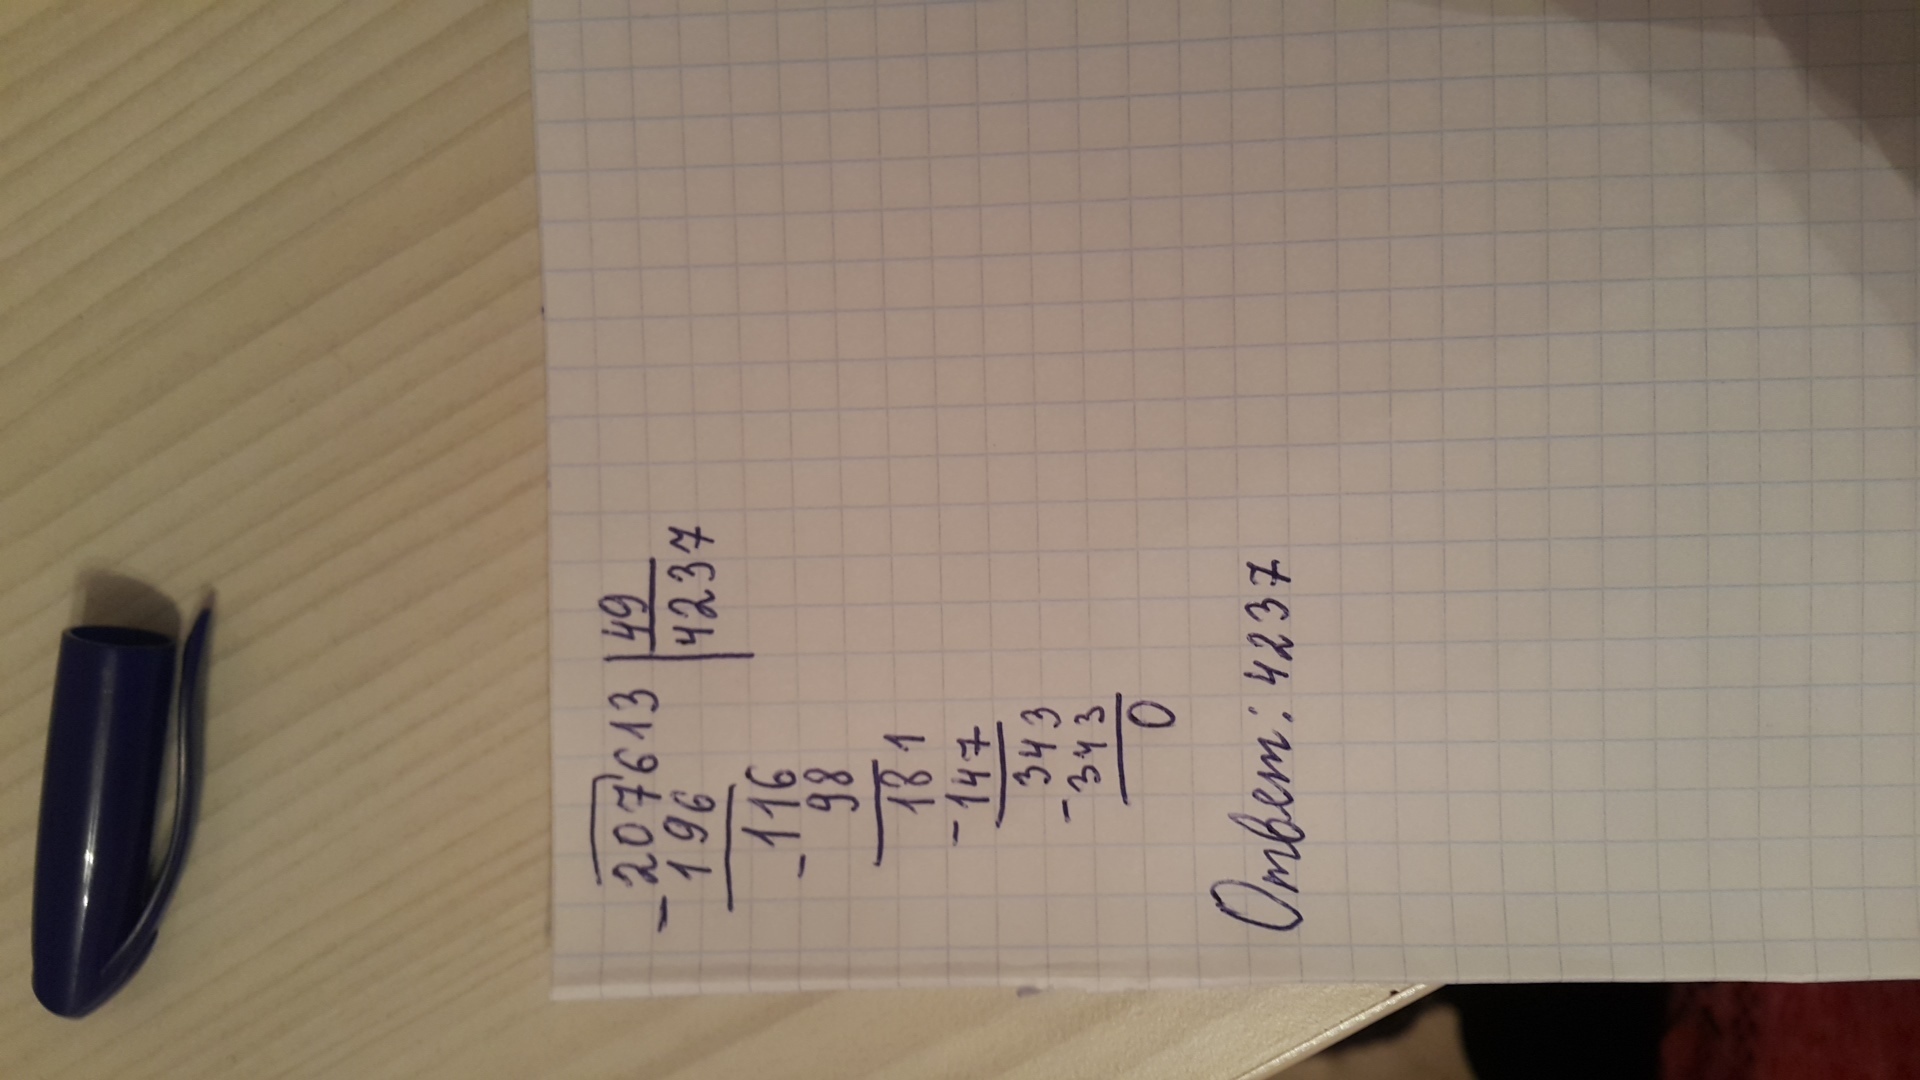 - 207613 | 49
196 | 4237
- 116
98
181
- 147
343
- 343
0
Ответ: 4237